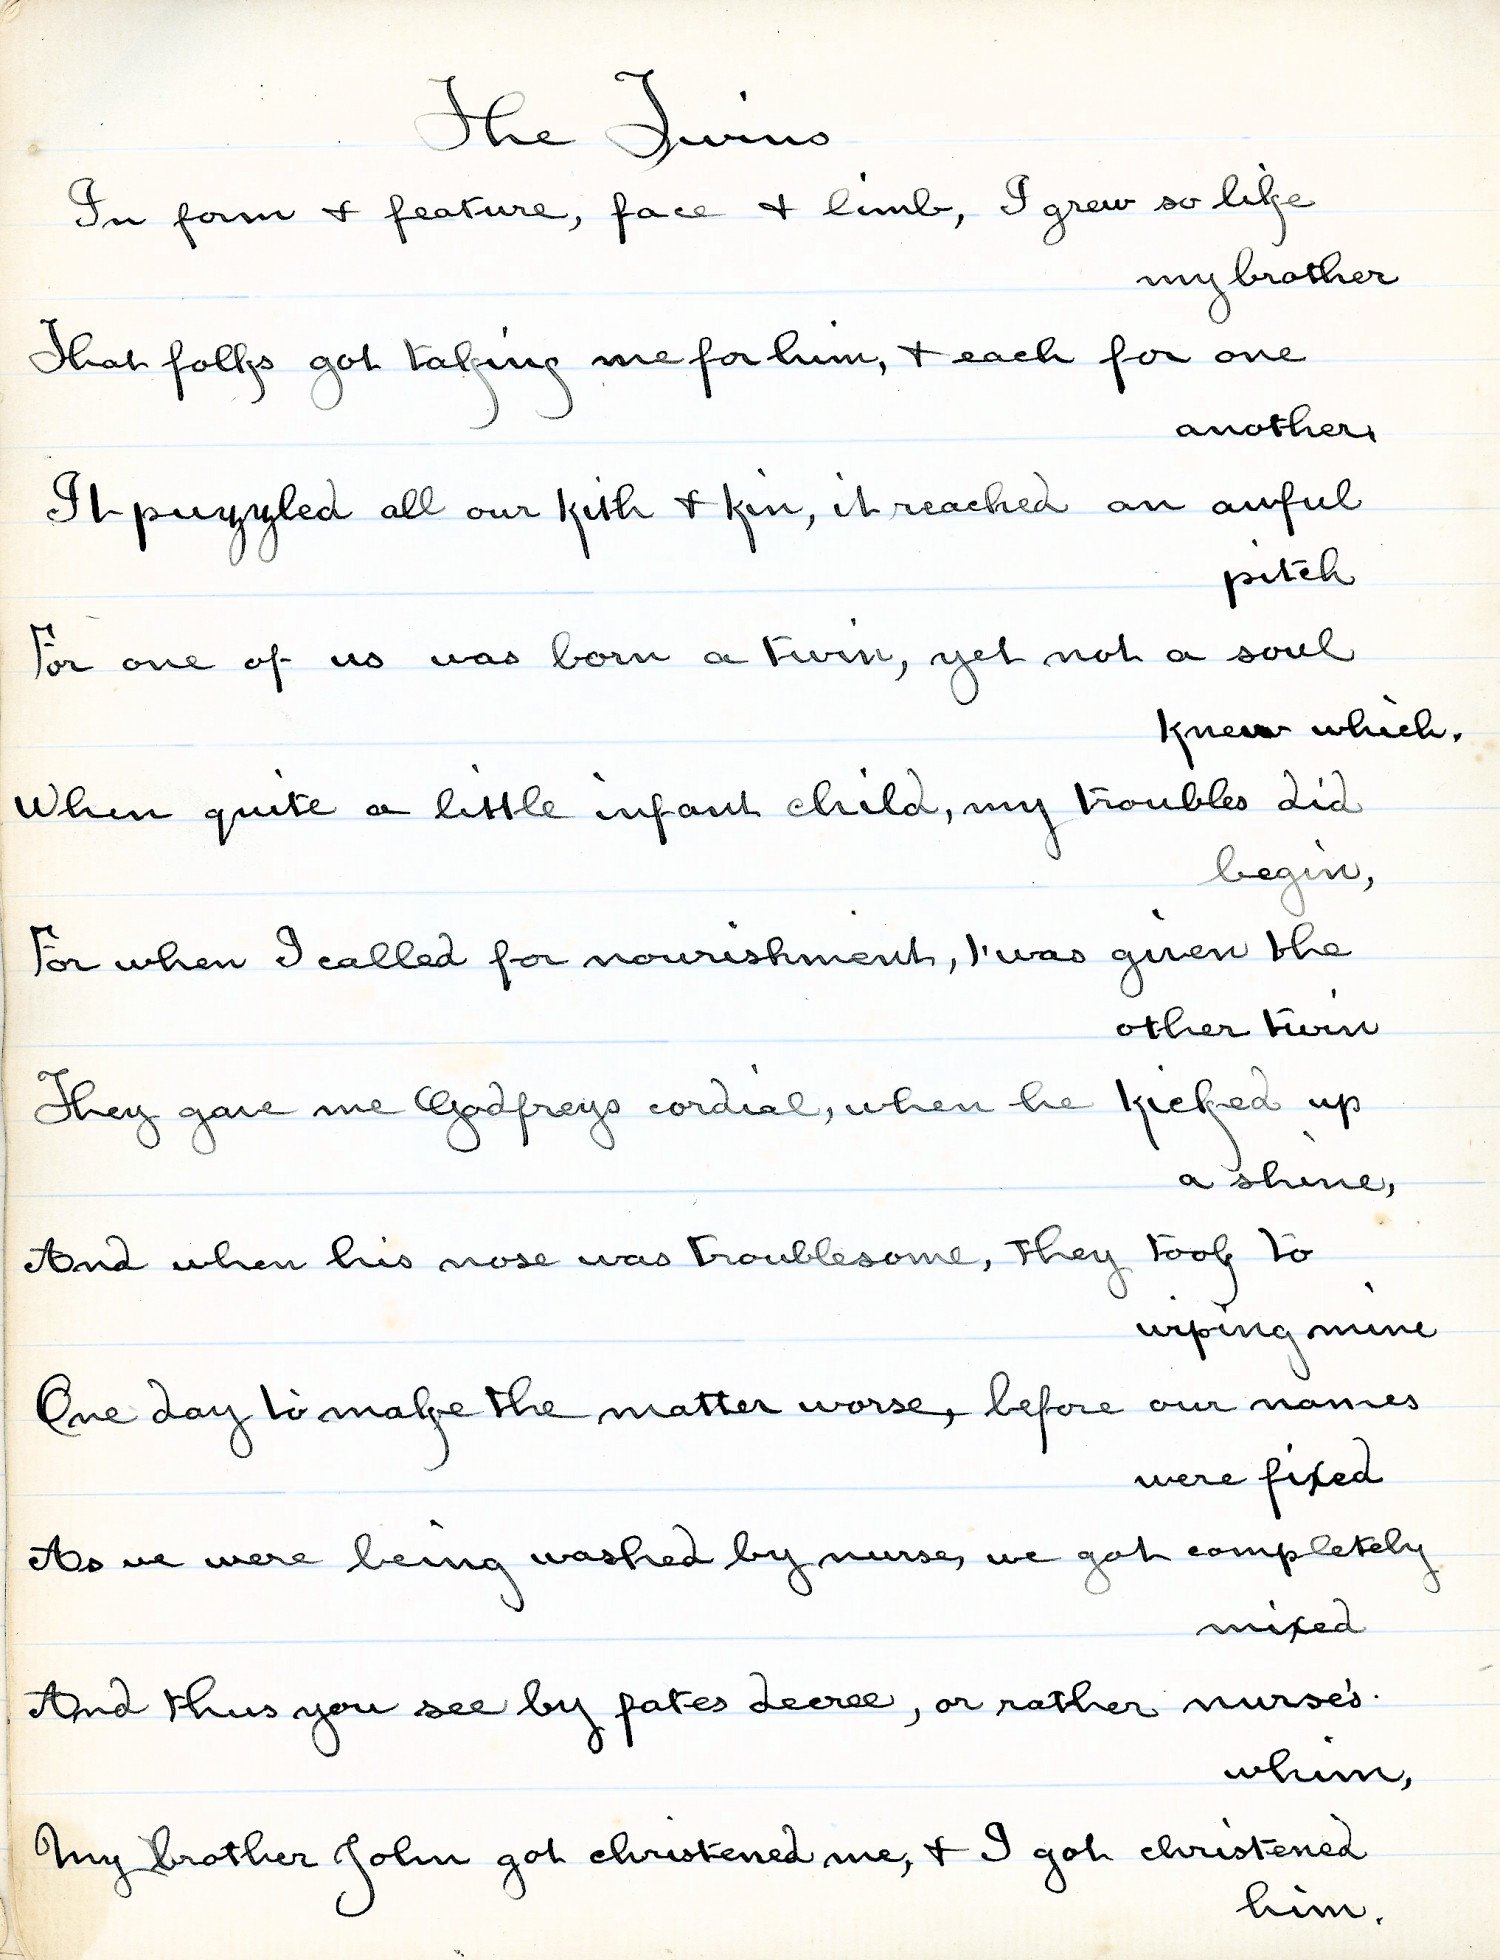 The Twins
In form & feature, face & limb, I grew so like
my brother
That folks got taking me for him, & each for one
another.
It puzzled all our kith & kin, it reached an awful
pitch
For one of us was born a twin, yet not a soul
knew which.
When quite a little infant child, my troubles did
begin,
For when I called for nourishment, t'was given the
other twin
They gave me Godfreys cordial, when he kicked up
a shine,
And when his nose was troublesome, they took to
wiping mine
One day to make the matter worse, before our names
were fixed
As we were being washed by nurse, we got completely
mixed
And thus you see by fates decree, or rather nurse's
whim,
My brother John got christened me, & I got christened
him.